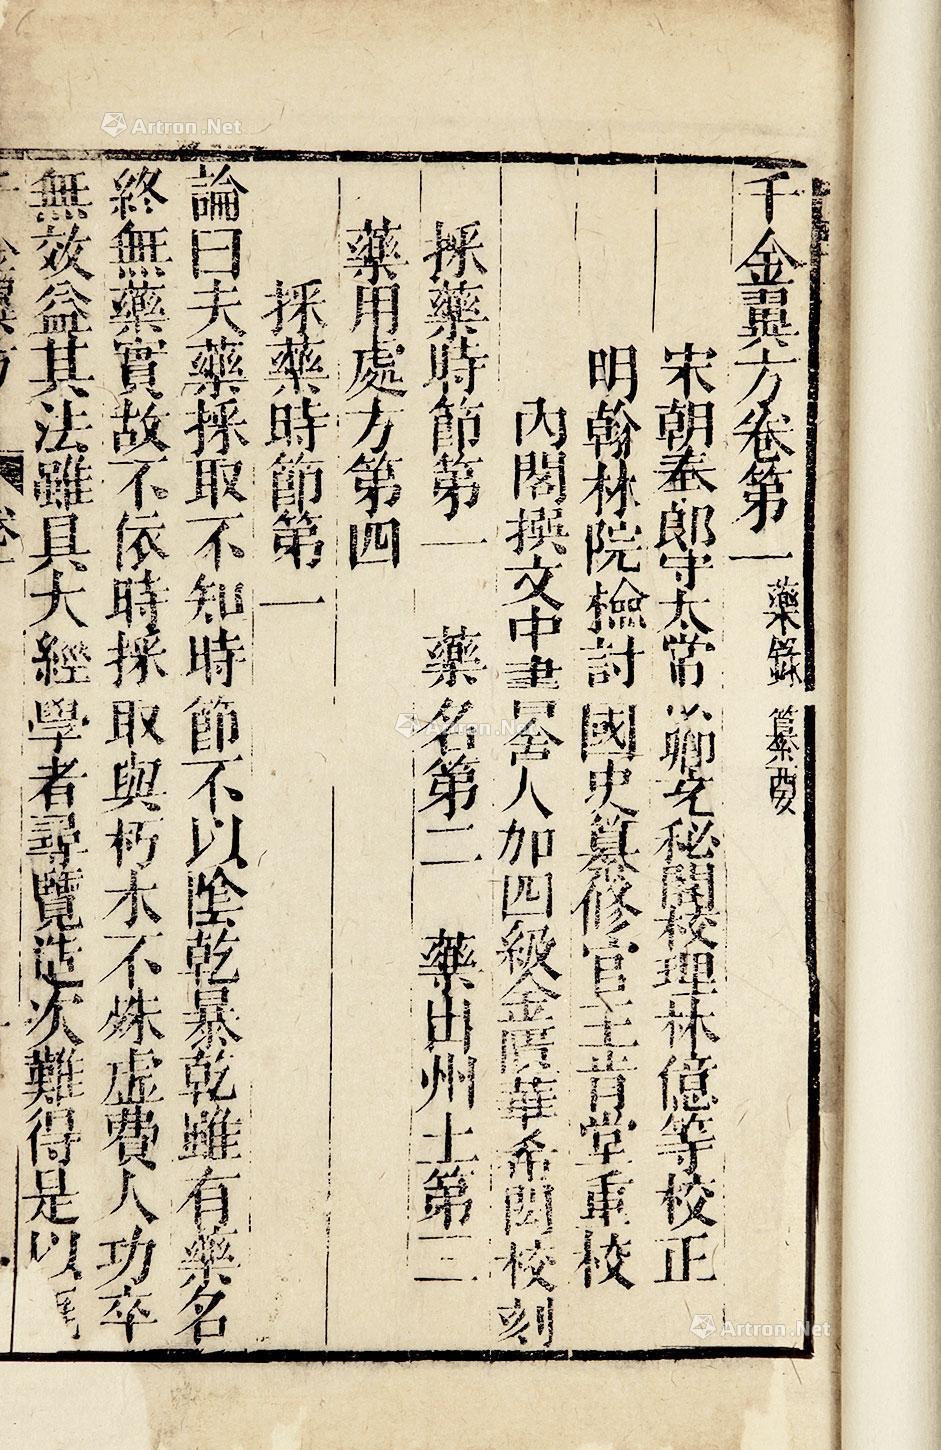 千金翼方卷第一 藥錄 纂要
宋朝奉郎守太常少卿充秘閣校理林億等校正
明翰林院檢討國史纂修官王肯堂重校
內閣撰文中書舍人加四級金匱華希閎校刻
採藥時節第一 藥名第二 藥出州土第三
藥用處方第四
採藥時節第一
論曰夫藥採取不知時節不以陰乾暴乾雖有藥名
終無藥實故不依時採取與朽木不殊虛費人功卒
無效益其法雖具大經學者尋覽造次難得是以
Artron.Net
Artron.Net
Artron.Net